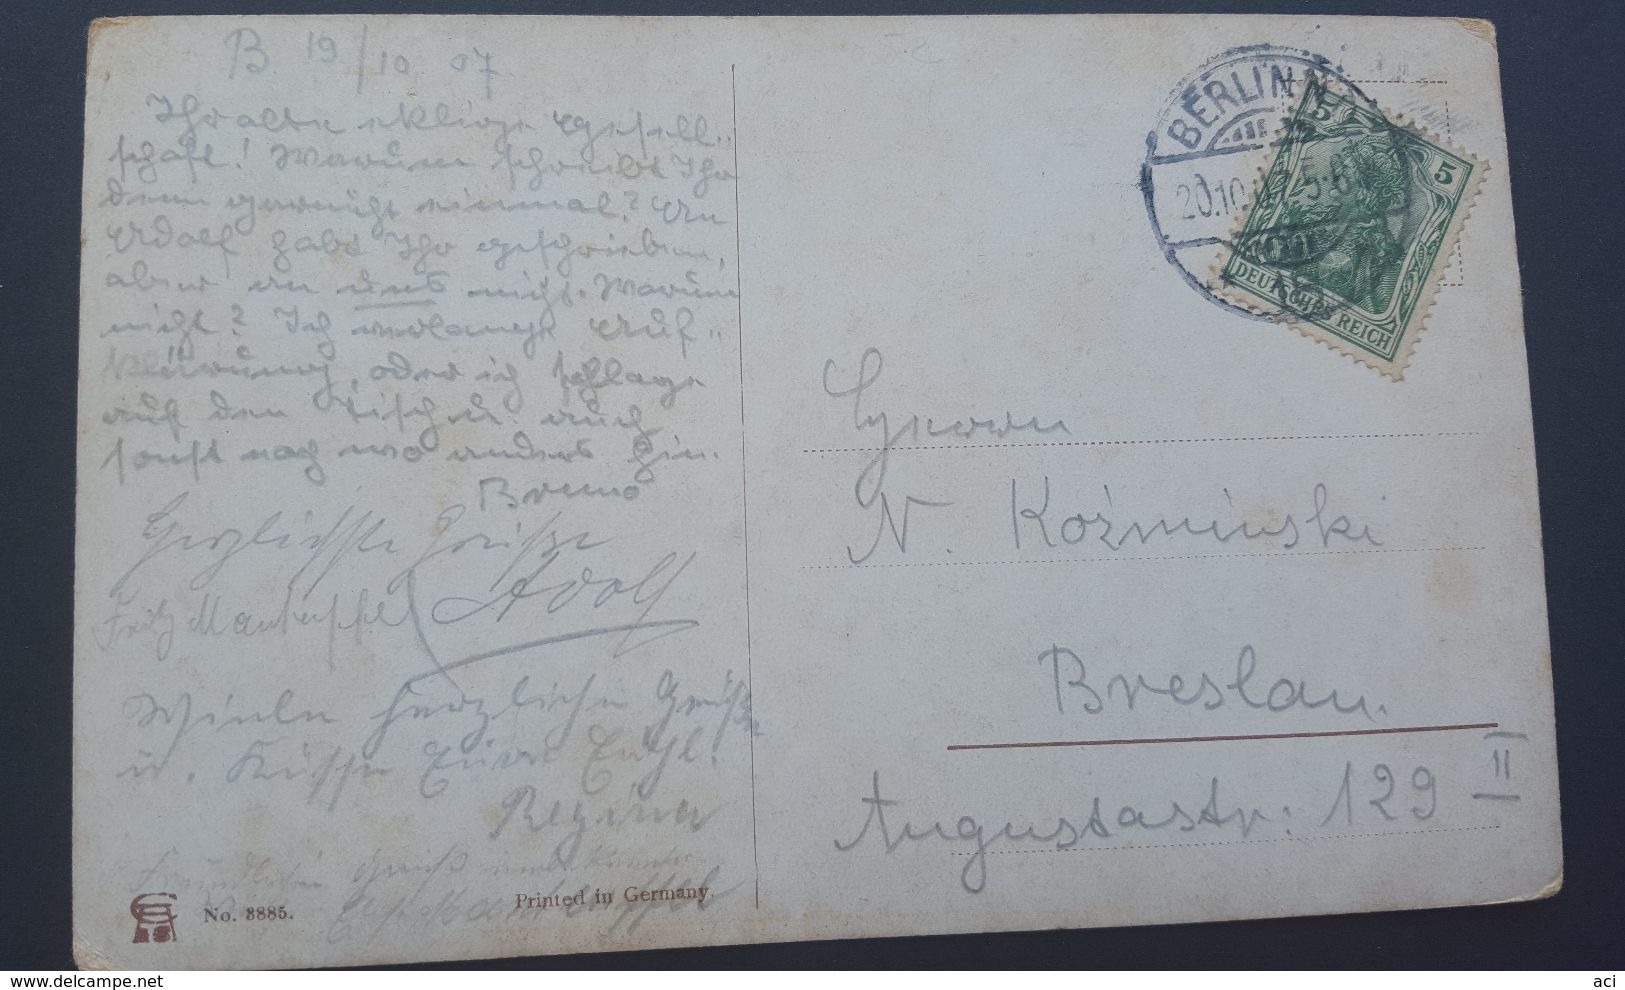 B 19/10 07
Ihr alte eklige Gesell-
schaft! Warum schreibt Ihr
denn garnicht einmal? An
Adolf habt Ihr geschrieben,
aber an uns nicht. Warum
nicht? Ich verlange Auf-
klärung, oder ich schlage
auf den Tisch u. auch
sonst noch wo anders hin.
Bruno
Herzlichste Grüße
Adolf
Fritz Manteuffel
Viele herzliche Grüße
u. Küsse Eure
Regina
Freundlichen Gruß
Manteuffel
No. 3885.
Printed in Germany.
BERLIN N
20.10.07 5-6
5
5
DEUTSCHES REICH
N. Koźminski
Breslau.
Augustastr: 129 II
aci